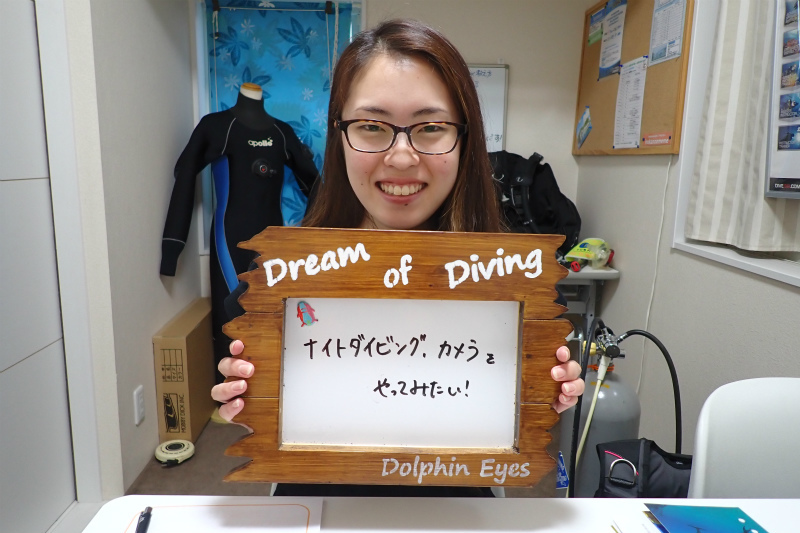 apollo
Dream of Diving
ナイトダイビング、カメラを
やってみたい!
Dolphin Eyes